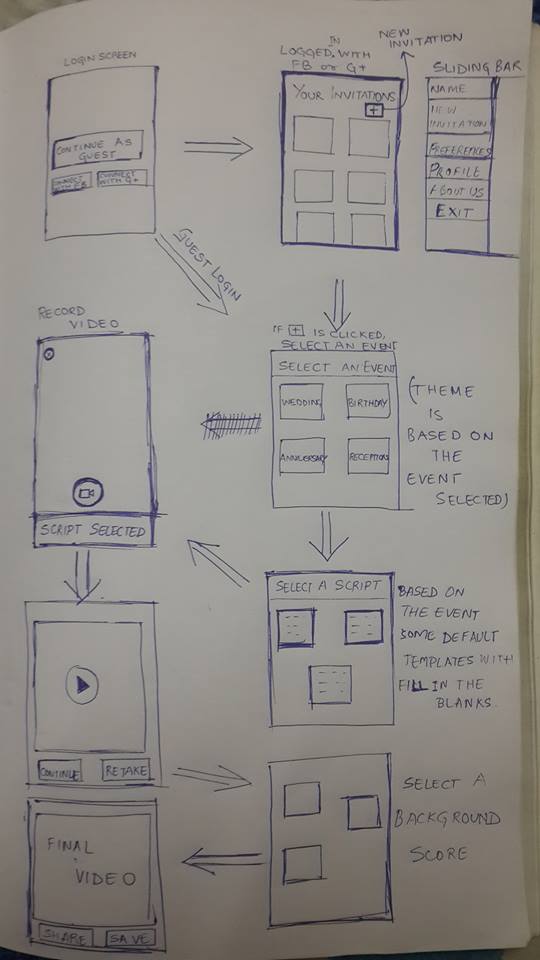 LOGIN SCREEN
CONTINUE AS
GUEST
CONNECT
WITH FB
CONNECT
WITH G+
IN
LOGGED WITH
FB or G+
NEW
INVITATION
YOUR INVITATIONS
+
SLIDING BAR
NAME
NEW
INVITATION
PREFERENCES
PROFILE
ABOUT US
EXIT
GUEST LOGIN
IF + IS CLICKED,
SELECT AN EVENT
SELECT AN EVENT
WEDDING
BIRTHDAY
ANNIVERSARY
RECEPTION
(THEME
IS
BASED ON
THE
EVENT
SELECTED)
RECORD
VIDEO
SCRIPT SELECTED
SELECT A SCRIPT
BASED ON
THE EVENT
SOME DEFAULT
TEMPLATES WITH
FILL IN THE
BLANKS.
CONTINUE
RETAKE
SELECT A
BACKGROUND
SCORE
FINAL
VIDEO
SHARE
SAVE